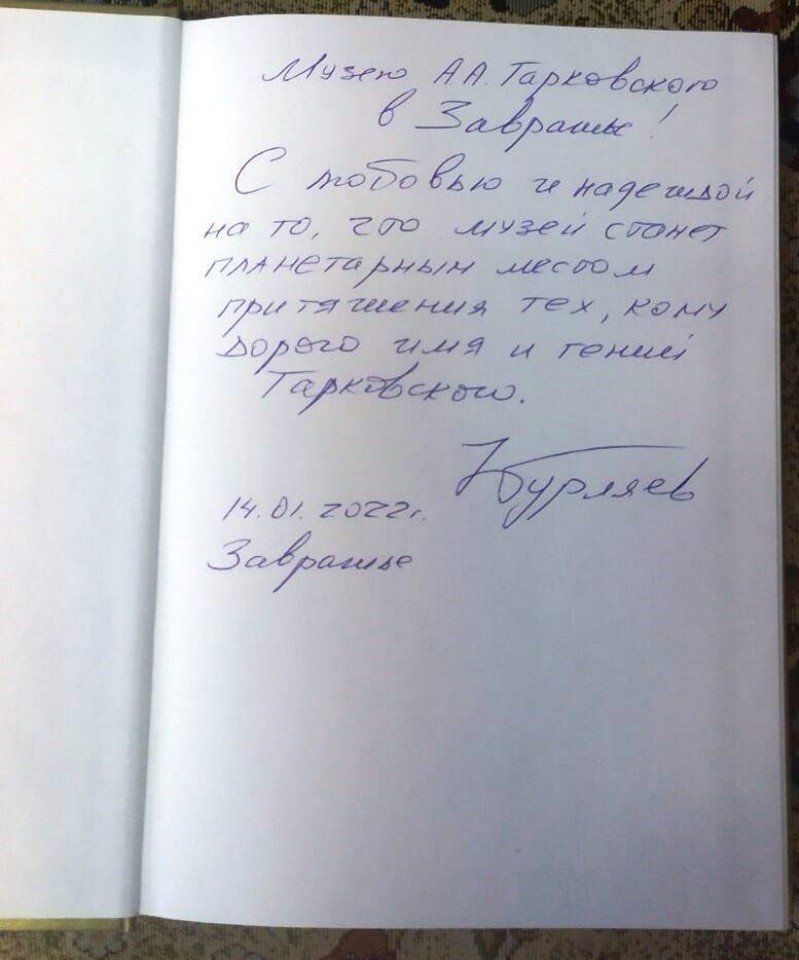 Музею А.А. Тарковского
в Завражье!
С любовью и надеждой
на то, что музей станет
планетарным местом
притяжения тех, кому
дорого имя и гений
Тарковского.
НБурляев
14.01.2022г.
Завражье